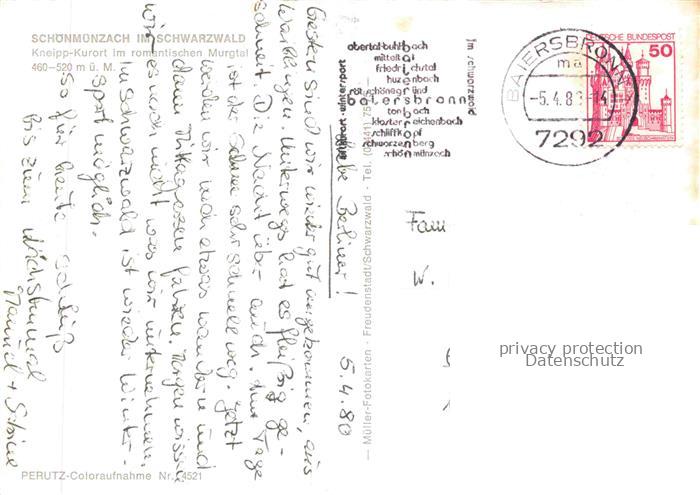 SCHÖNMÜNZACH IM SCHWARZWALD
Kneipp-Kurort im romantischen Murgtal
460–520 m ü. M.
5.4.80
Liebe Berliner!
Gestern sind wir wieder gut angekommen, aus
Unterwegs hat es fleißig ge-
schneit. Die Nacht über auch. Am Tage
ist der Schnee sehr schnell weg. Jetzt
werden wir noch etwas wandern und
dann Mittagessen fahren. Morgen wissen
wir es noch nicht was wir unternehmen.
Im Schwarzwald ist wieder Winter-
sport möglich.
So für heute Schluß
bis zum nächstenmal
Manuel + Sabine
PERUTZ-Coloraufnahme Nr. 4521
— Müller-Fotokarten · Freudenstadt/Schwarzwald · Tel.
obertal-buhlbach
mitteltal
friedrichstal
huzenbach
röt-schönegründ
baiersbronn
tonbach
klosterreichenbach
schliffkopf
schwarzenberg
schönmünzach
im schwarzwald
BAIERSBRONN
ma
-5.4.80-14
7292
DEUTSCHE BUNDESPOST
50
Fam
W.
privacy protection
Datenschutz